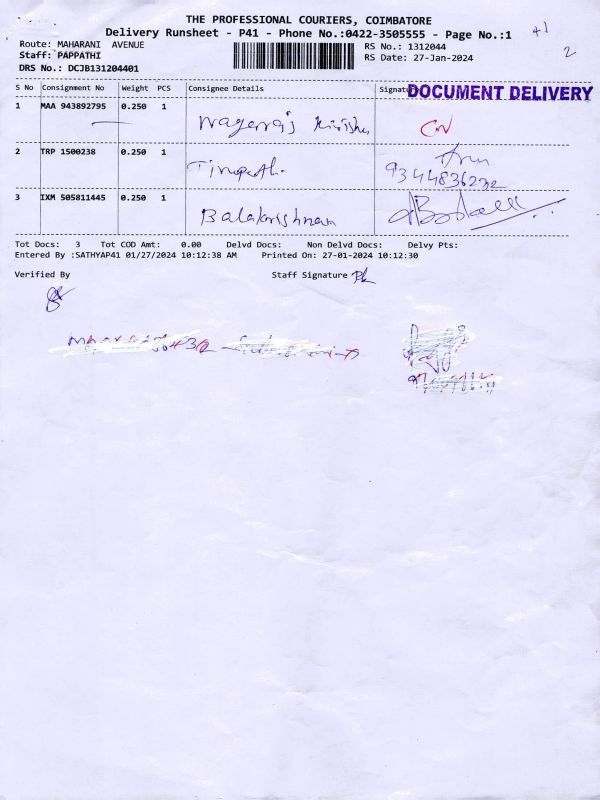 THE PROFESSIONAL COURIERS, COIMBATORE
Delivery Runsheet - P41 - Phone No.:0422-3505555 - Page No.:1
41
2
Route: MAHARANI AVENUE
RS No.: 1312044
Staff: PAPPATHI
RS Date: 27-Jan-2024
DRS No.: DCJB131204401
S No Consignment No Weight PCS Consignee Details Signature
DOCUMENT DELIVERY
1 MAA 943892795 0.250 1 Nagaraj
CN
2 TRP 1500238 0.250 1 Tirupathi
9344836232
3 IXM 505811445 0.250 1 Balakrishnan
Tot Docs: 3 Tot COD Amt: 0.00 Delvd Docs: Non Delvd Docs: Delvy Pts:
Entered By :SATHYAP41 01/27/2024 10:12:38 AM Printed On: 27-01-2024 10:12:30
Verified By Staff Signature